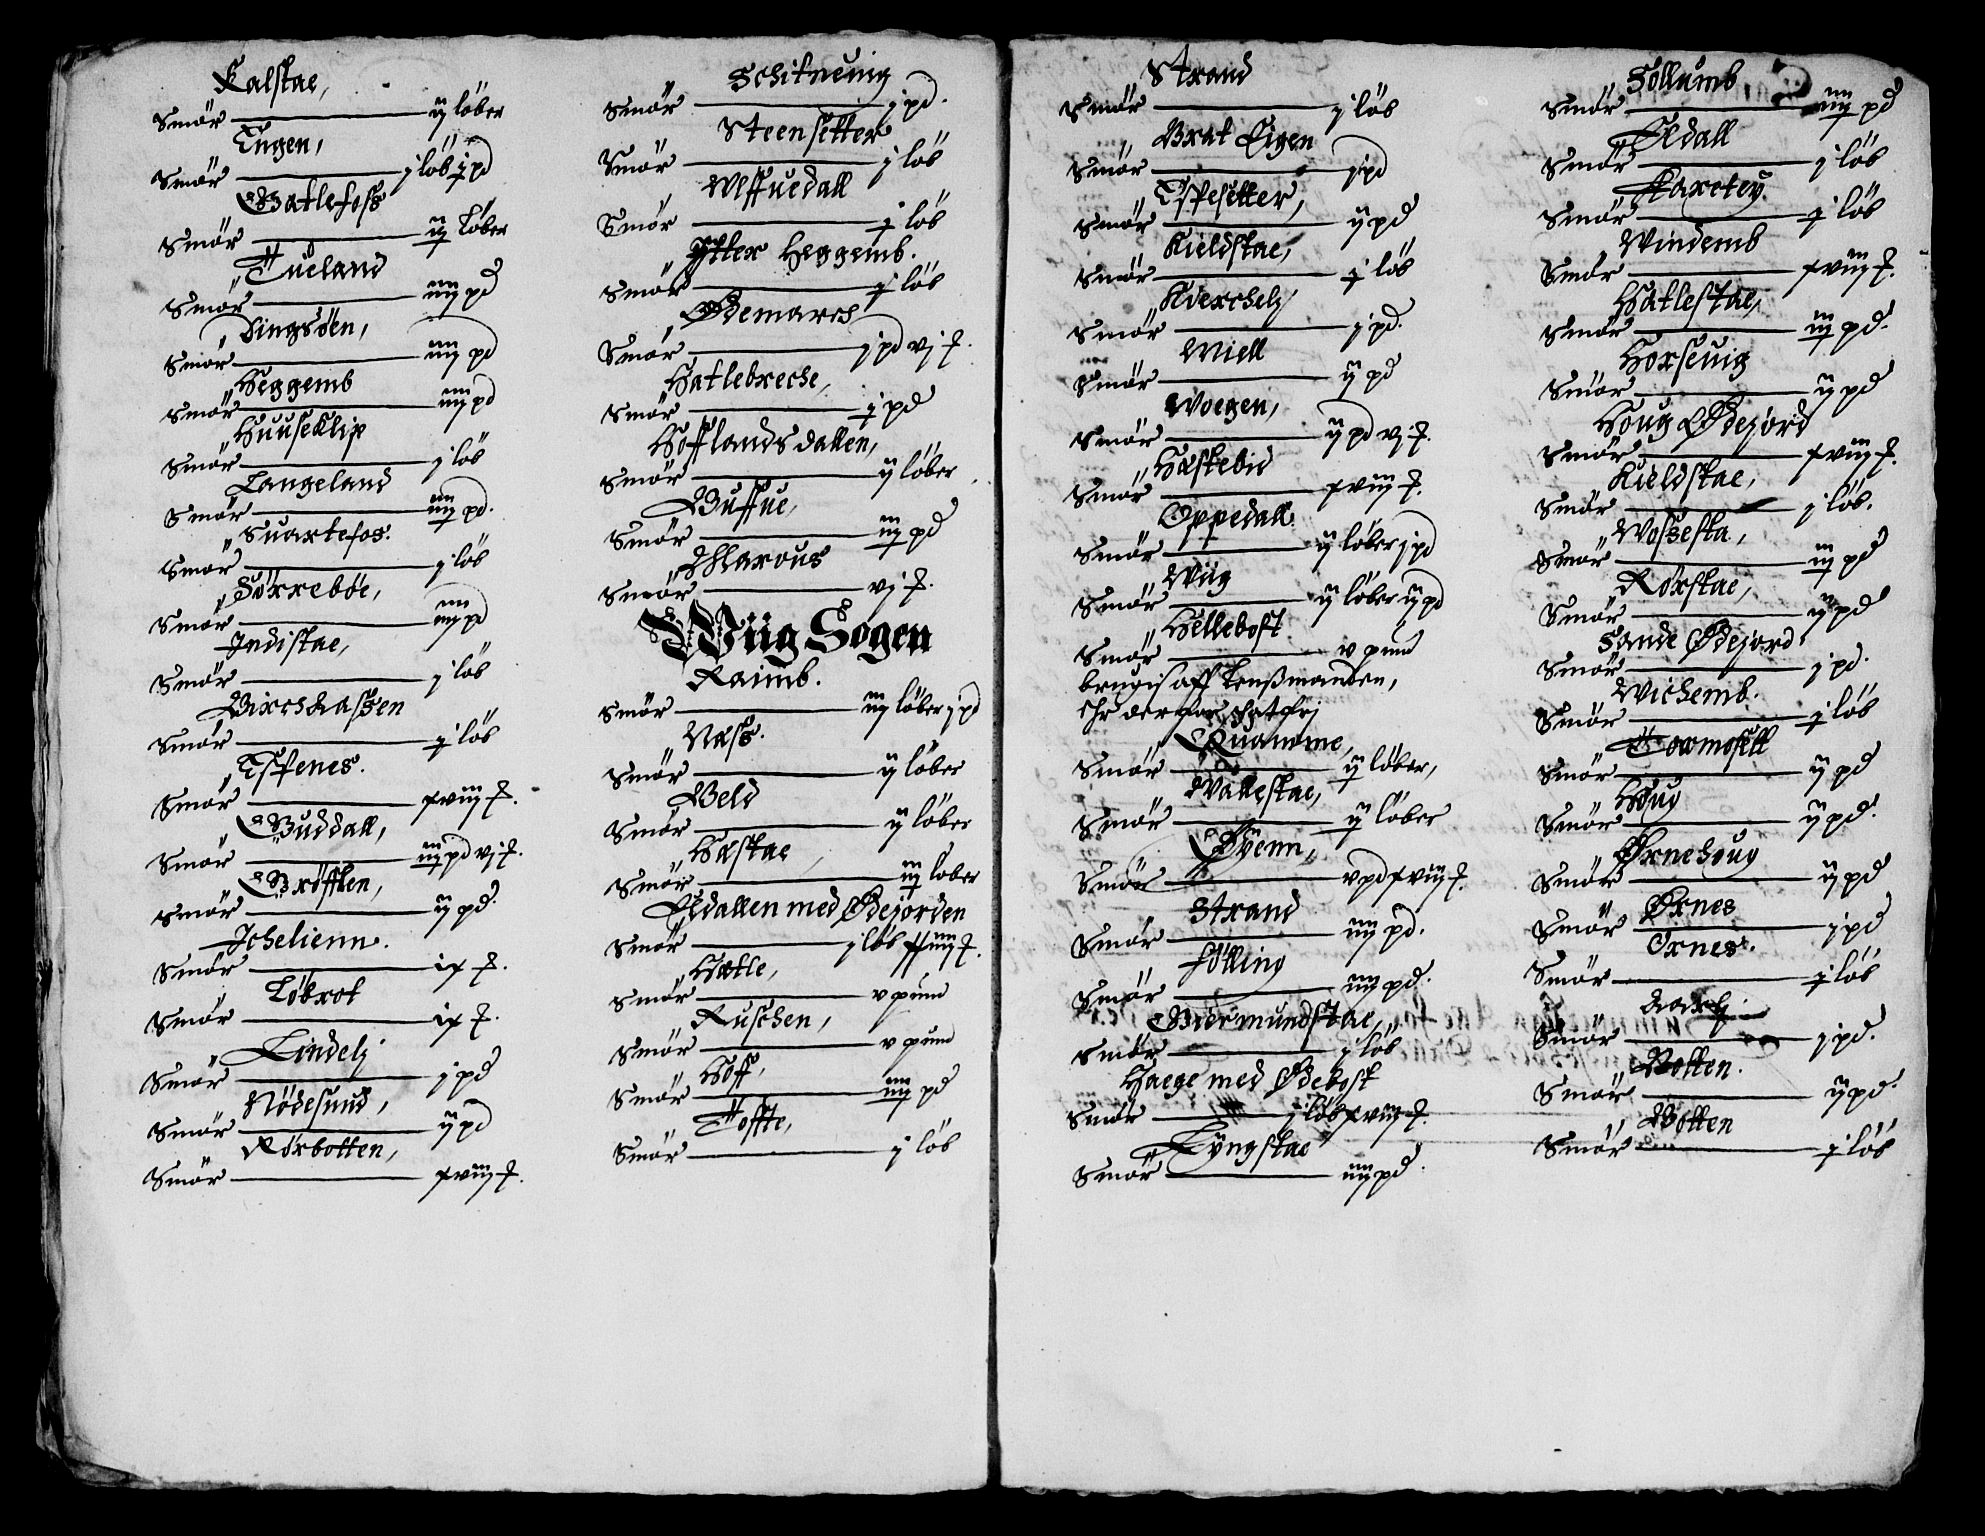 Kalstae,
Smör ij löber
Engen,
Smör j löb j pd
Hatlefoss
Smör ij Löber
Tueland
Smör iiij pd
Dingsöen,
Smör iiij pd
Heggemb
Smör iiij pd
Huuseklip
Smör j löb
Langeland
Smör iiij pd.
Suartefos.
Smör j löb
Sörreböe,
Smör iiij pd
Indistae,
Smör j löb
Birchhassen
Smör j löb
Espenes.
Smör xviij
Buddall,
Smör iiij pd vj
Bröfften,
Smör ij pd.
Ichelienn.
Smör ix
Löbrot
Smör ix
Lindelj
Smör j pd
Nödesund,
Smör ij pd
Rörbotten,
Smör xviij
Schifneuig
Smör j pd.
Steensetter
Smör j löb
Ulffuedall
Smör j löb
Ytter Heggemb.
Smör j löb
Ødemarch
Smör j pd vj
Hatlebreche,
Smör j pd
Höfflandsdallen,
Smör ij löber
Buffue,
Smör iij pd
Marous
Smör vj
Wiig Sogen
Raimb.
Smör iij löber j pd
Næss.
Smör ij löber
Weld
Smör ij löber
Hæstae
Smör iij löber
Eldallen med Ødejorden
Smör j löb
Hætle,
Smör v pund
Ruschen,
Smör v pund
Hoff,
Smör iiij pd
Toffte,
Smör j löb
Strand
Smör j löb
Brat Eigen
Smör j pd
Espesetter,
Smör ij pd
Kieldstae,
Smör j löb
Kierchelj
Smör j pd.
Miell
Smör ij pd
Woegen,
Smör ij pd vj
Hæstebid
Smör xviij
Oppedall.
Smör ij löber j pd
Wiig
Smör ij löber ij pd
Hellebost
Smör v pund
brugis aff Lenßmanden,
Ehr derfor schatfrj
Quamme,
Smör ij löber,
Wallestae,
Smör ij löber
Øyenn,
Smör v pd xviij
Strand
Smör iiij pd.
Fölling
Smör iiij pd.
Giermundstae,
Smör j löb
Haege med Ødebost
Smör j löb xviij
Lyngstae
Smör iiij pd.
Sollumb
Smör iiij pd
Eldall
Smör j löb
Haretey.
Smör j löb
Windemb
Smör xviij
Hatlestae,
Smör iij pd.
Horseuig
Smör ij pd
Houg Ødejord
Smör xviij
Kieldstae,
Smör j löb.
Wossesta,
Smör iij pd
Rørstae,
Smör ij pd
Sande Ødejord
Smör j pd.
Wichemb.
Smör j löb
Tormosell
Smör ij pd
Houg
Smör ij pd.
Ørnehoug
Smör ij pd
Ørnes
Smör j pd
Ornes.
Smör j löb
Smör j pd.
Botten.
Smör ij pd.
Botten
Smör j löb